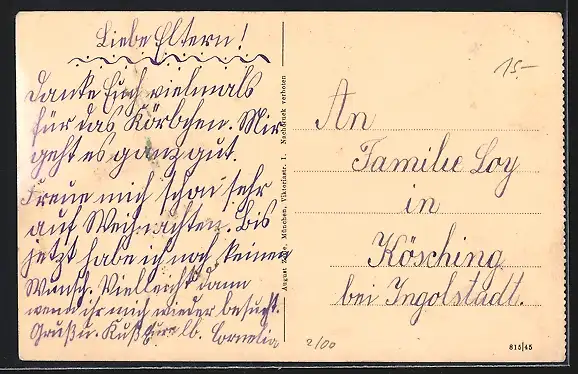 Liebe Eltern!
Danke Euch vielmals
für das Körbchen. Mir
geht es ganz gut.
Freue mich schon sehr
auf Weihnachten. Bis
jetzt habe ich noch keinen
Wunsch. Vielleicht dann
wenn ihr mich wieder besucht.
Gruß u. Kuß Eure lb. Cornelia
August Zerle, München, Viktoriastr. 1. Nachdruck verboten
15-
An
Familie Loy
in
Kösching
bei Ingolstadt.
2/00
815/45